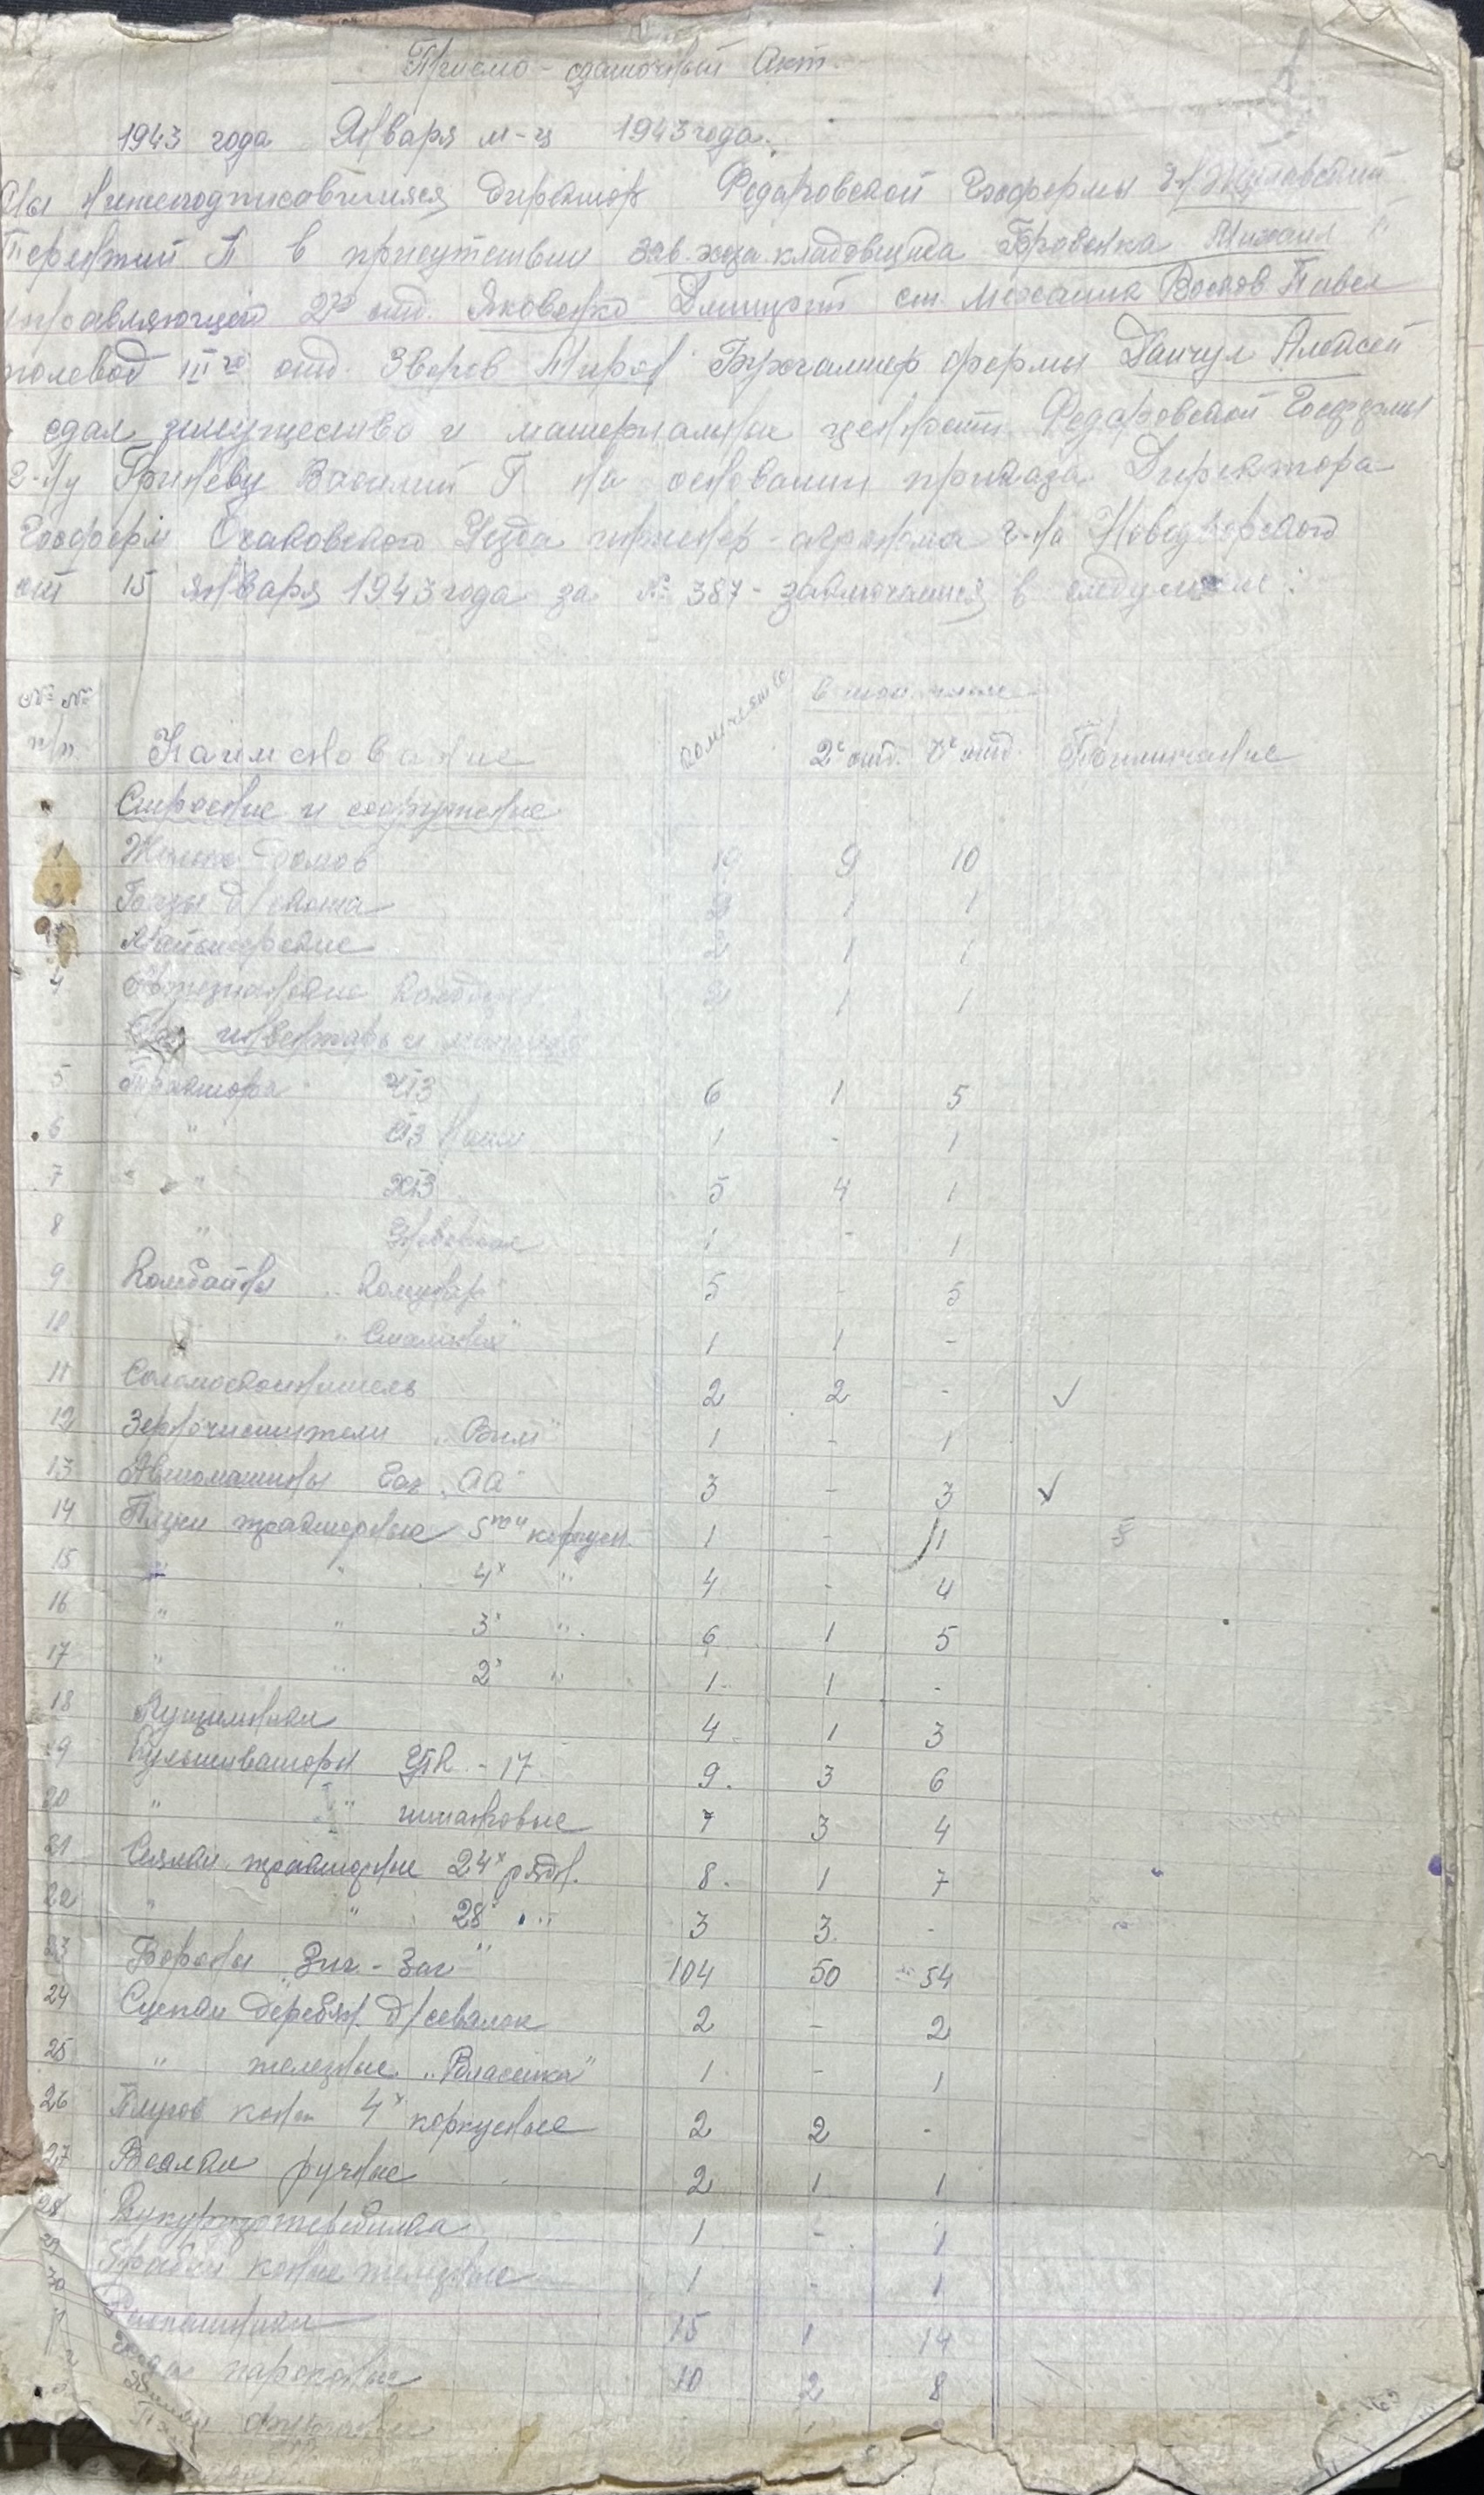 Приемо-сдаточный Акт
1943 года Января м-ц 1943 года.
Мы нижеподписавшияся Директор Федаровской Госфермы
в присутствии зав. хоза кладовщика Бровенка Михаил
2го отд. Яковенко Дмицрий ст. Механик Волков Павел
полевод IIIго отд. Зверев Бухгалтер фермы Данчул Алексей
сдал имущество и материальные ценности Федаровской Госфермы
г-ну Гриневу Василий Г на основании приказа Директора
Госферм Очаковского Уезда инженер-агронома г-на Новодворского
от 15 января 1943 года за № 387 - заключающиеся в следующем:
№ №
п/п Наименование количество в том числе
2х отд. 3х отд. Примичание
Строение и сооружение
1 Жилых домов 19 9 10
2 Базы д/скота 2 1 1
3 2 1 1
4 2 1 1
инвентарь и
5 Трактора ЧТЗ 6 1 5
6 " 1 - 1
7 " ХТЗ 5 4 1
8 " 1 - 1
9 Комбайны "Комунар" 5 - 5
10 " "Сталинец" 1 1 -
11 2 2 - ✓
12 Зерночистители "Вим" 1 - 1
13 Автомашины Газ "АА" 3 - 3 ✓
14 Плуги тракторные 5ти корпусн. 1 - 1
15 " " 4х " 4 - 4
16 " " 3х " 6 1 5
17 " " 2х " 1 1 -
18 Лущильники 4 1 3
19 Культиваторы УТК - 17 9 3 6
20 " " штанговые 7 3 4
21 Сеялки тракторные 24х рядн. 8 1 7
22 " " 28 " 3 3 -
23 Бороны "Зиг-Заг" 104 50 54
24 Сцепки деревян. д/севалок 2 - 2
25 " железные 1 - 1
26 Плугов конн 4х корпусные 2 2 -
27 Веялки ручные 2 1 1
28 1 - 1
29 Грабли конные железные 1 - 1
30 Распашники 15 1 14
10 2 8